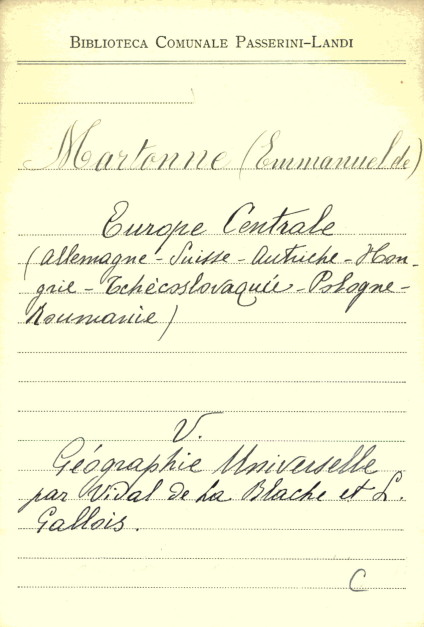 BIBLIOTECA COMUNALE PASSERINI-LANDI
Martonne (Emmanuel de)
Europe Centrale
(Allemagne - Suisse - Autriche - Hon-
grie - Tchécoslovaquie - Pologne -
Roumanie)
V.
Géographie Universelle
par Vidal de la Blache et L.
Gallois.
C